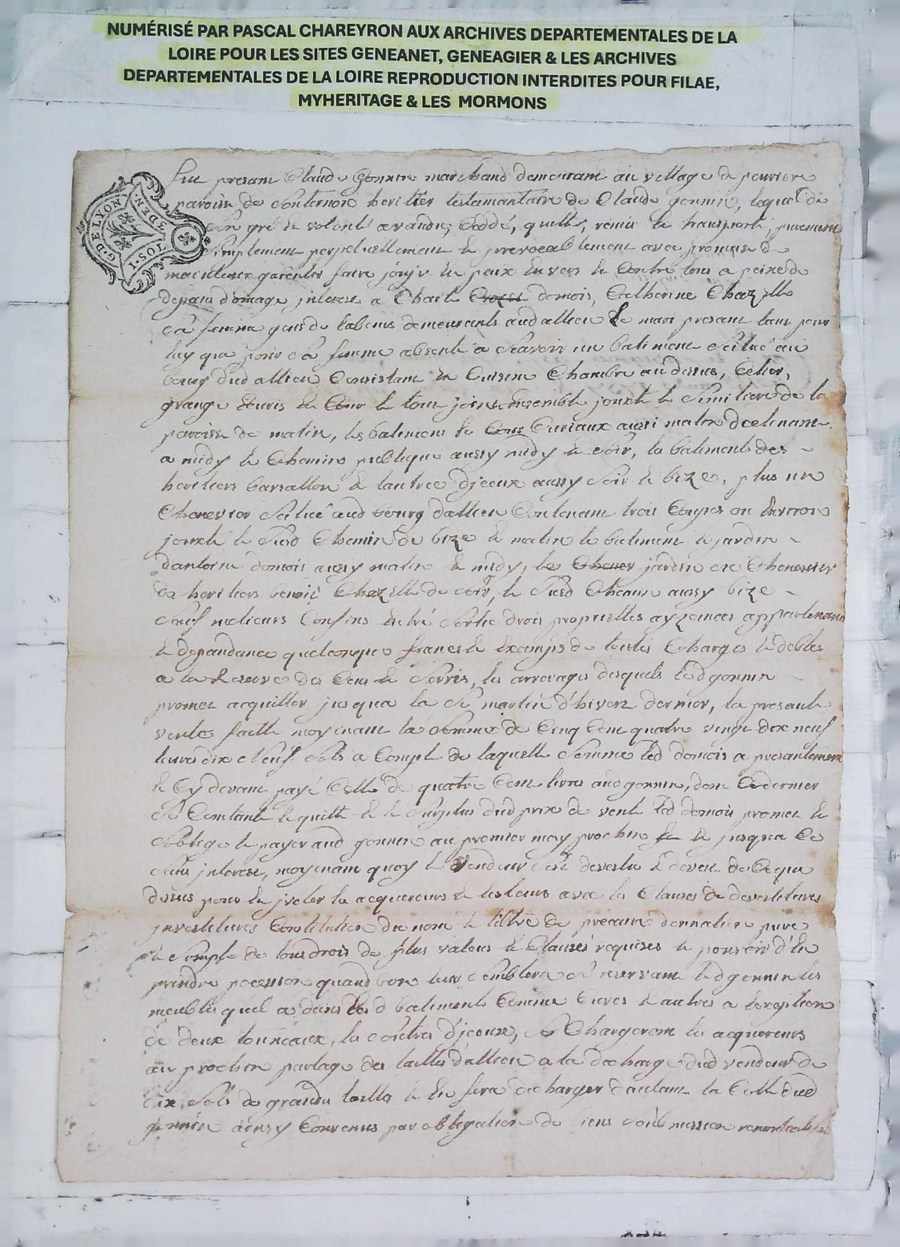 NUMÉRISÉ PAR PASCAL CHAREYRON AUX ARCHIVES DEPARTEMENTALES DE LA
LOIRE POUR LES SITES GENEANET, GENEAGIER & LES ARCHIVES
DEPARTEMENTALES DE LA LOIRE REPRODUCTION INTERDITES POUR FILAE,
MYHERITAGE & LES MORMONS
G. DE LYON
I. SOL
EDEN
fut presant Claude gonnin marchand demeurant au village de
paroisse de heritier testamentaire de Claude gonnin, lequel de
son gré et volonté a vandu, ceddé, quitté, remis et transporté, purement
simplement perpetuellement et irrevocablement avec promesse de
maintenir garentir faire jouyr en paix envers et contre tous a peine de
depans domage interest a Charle demois, Catherine Chazelle
sa femme demeurants aud allieu le mary presant tant pour
luy que pour sa femme absente a scavoir un batiment scitué au
bourg dud allieu consistant en cuisine chambre au dessus, celier,
grange et cour le tout joint ensemble jouxte le simitiere de la
paroisse de matin, les batiment de aussi matin declinant
a midy le chemins publique aussy midy et soir, les batiments des
heritiers barsallon et lautre d'jceux aussy soir et bize, plus un
chenevier scitué aud bourg dallieu contenant trois coupes ou environ
jouxte le susd chemin de bize et matin le batiment et jardin
dantoine demois aussy matin et midy, les jardin et chenevier
des heritiers benoit Chazelle de soir, le susd chemin aussy bize
sauf meilieurs confins entré sortie drois proprietés ayzances appartenances
et depandance quelconque franc et exampt de toutes charges et debtes
a la reserve des cens et servis, les arrerages desquels led gonnin
promet acquitter jusqua la St martin d'hivert dernier, la presante
vente faitte moyenant la somme de cinq cent quatre vingt dix neuf
livres dix neuf sols a compte de laquelle somme led demois a presantement
et cy devant payé celle de quatre cent livres aud gonnin, dont ce dernier
se contante et quitte et le surplus dud prix de vente led demois promet et
soblige de payer aud gonnin au premier may prochin et jusqua ce
sans interest, moyenant quoy le vendeur sest devestu et devet de ce que
dessus pour en jnvetir les acquereurs et les leurs avec les clauses de devestitures
jnvestitures constitution du nom et tittre de precaire donnation pure
et simple de tous drois de plus values et clauses requises et pouvoir d'en
prendre possession quand bon leur semblera se reservant led gonnin les
meubles quel a dans lesd batiments et autres a lexeption
de deux touneaux, les d'jceux, se chargeront les acquereurs
au prochin partage des tailles dallieu a la decharge dud vendeur de
dix sols de grande taille et en fera decharger dautant la cotte dud
gonnin ainsy convenus par obligation de biens soubmission renontiation